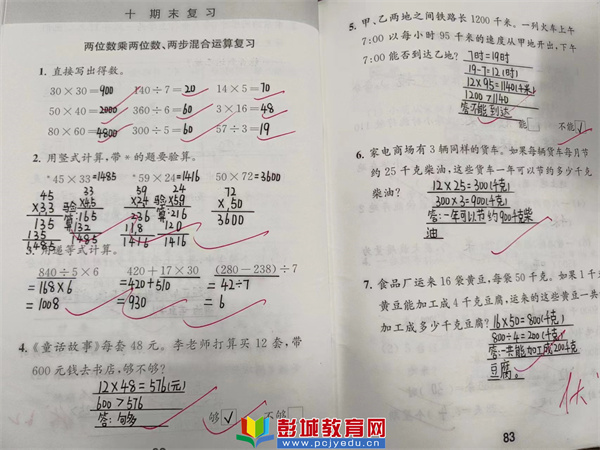 十 期末复习
两位数乘两位数、两步混合运算复习
1. 直接写出得数。
30×30=900 140÷7=20 14×5=70
50×40=2000 360÷6=60 3×16=48
80×60=4800 300÷5=60 57÷3=19
2. 用竖式计算，带*的题要验算。
*45×33=1485 *59×24=1416 50×72=3600
45 33 59 24 72
×33 验×45 ×24 验×59 ×50
135 算:165 236 算:216 3600
135 132 118 120
1485 1485 1416 1416
3. 用递等式计算。
840÷5×6 420+17×30 (280-238)÷7
=168×6 =420+510 =42÷7
=1008 =930 =6
4. 《童话故事》每套48元。李老师打算买12套，带
600元钱去书店，够不够?
12×48=576(元)
600>576
答:够
够 ✓ 不够
5. 甲、乙两地之间铁路长1200千米。一列火车上午
7:00以每小时95千米的速度从甲地开出，下午
7:00能否到达乙地? 7时=19时
19-7=12(时)
12×95=1140(千米)
1200>1140
答:不能到达
能 不能 ✓
6. 家电商场有3辆同样的货车。如果每辆货车每月节
约25千克柴油，这些货车一年可以节约多少千克
柴油?
12×25=300(千克)
300×3=900(千克)
答:一年可以节约900千克柴
油
7. 食品厂运来16袋黄豆，每袋50千克。如果1千
黄豆能加工成4千克豆腐，运来的这些黄豆一共
加工成多少千克豆腐? 16×50=800(千克)
800÷4=200(千克)
答:一共能加工成200千克
豆腐。
83
彭城教育网
www.pcjyedu.cn